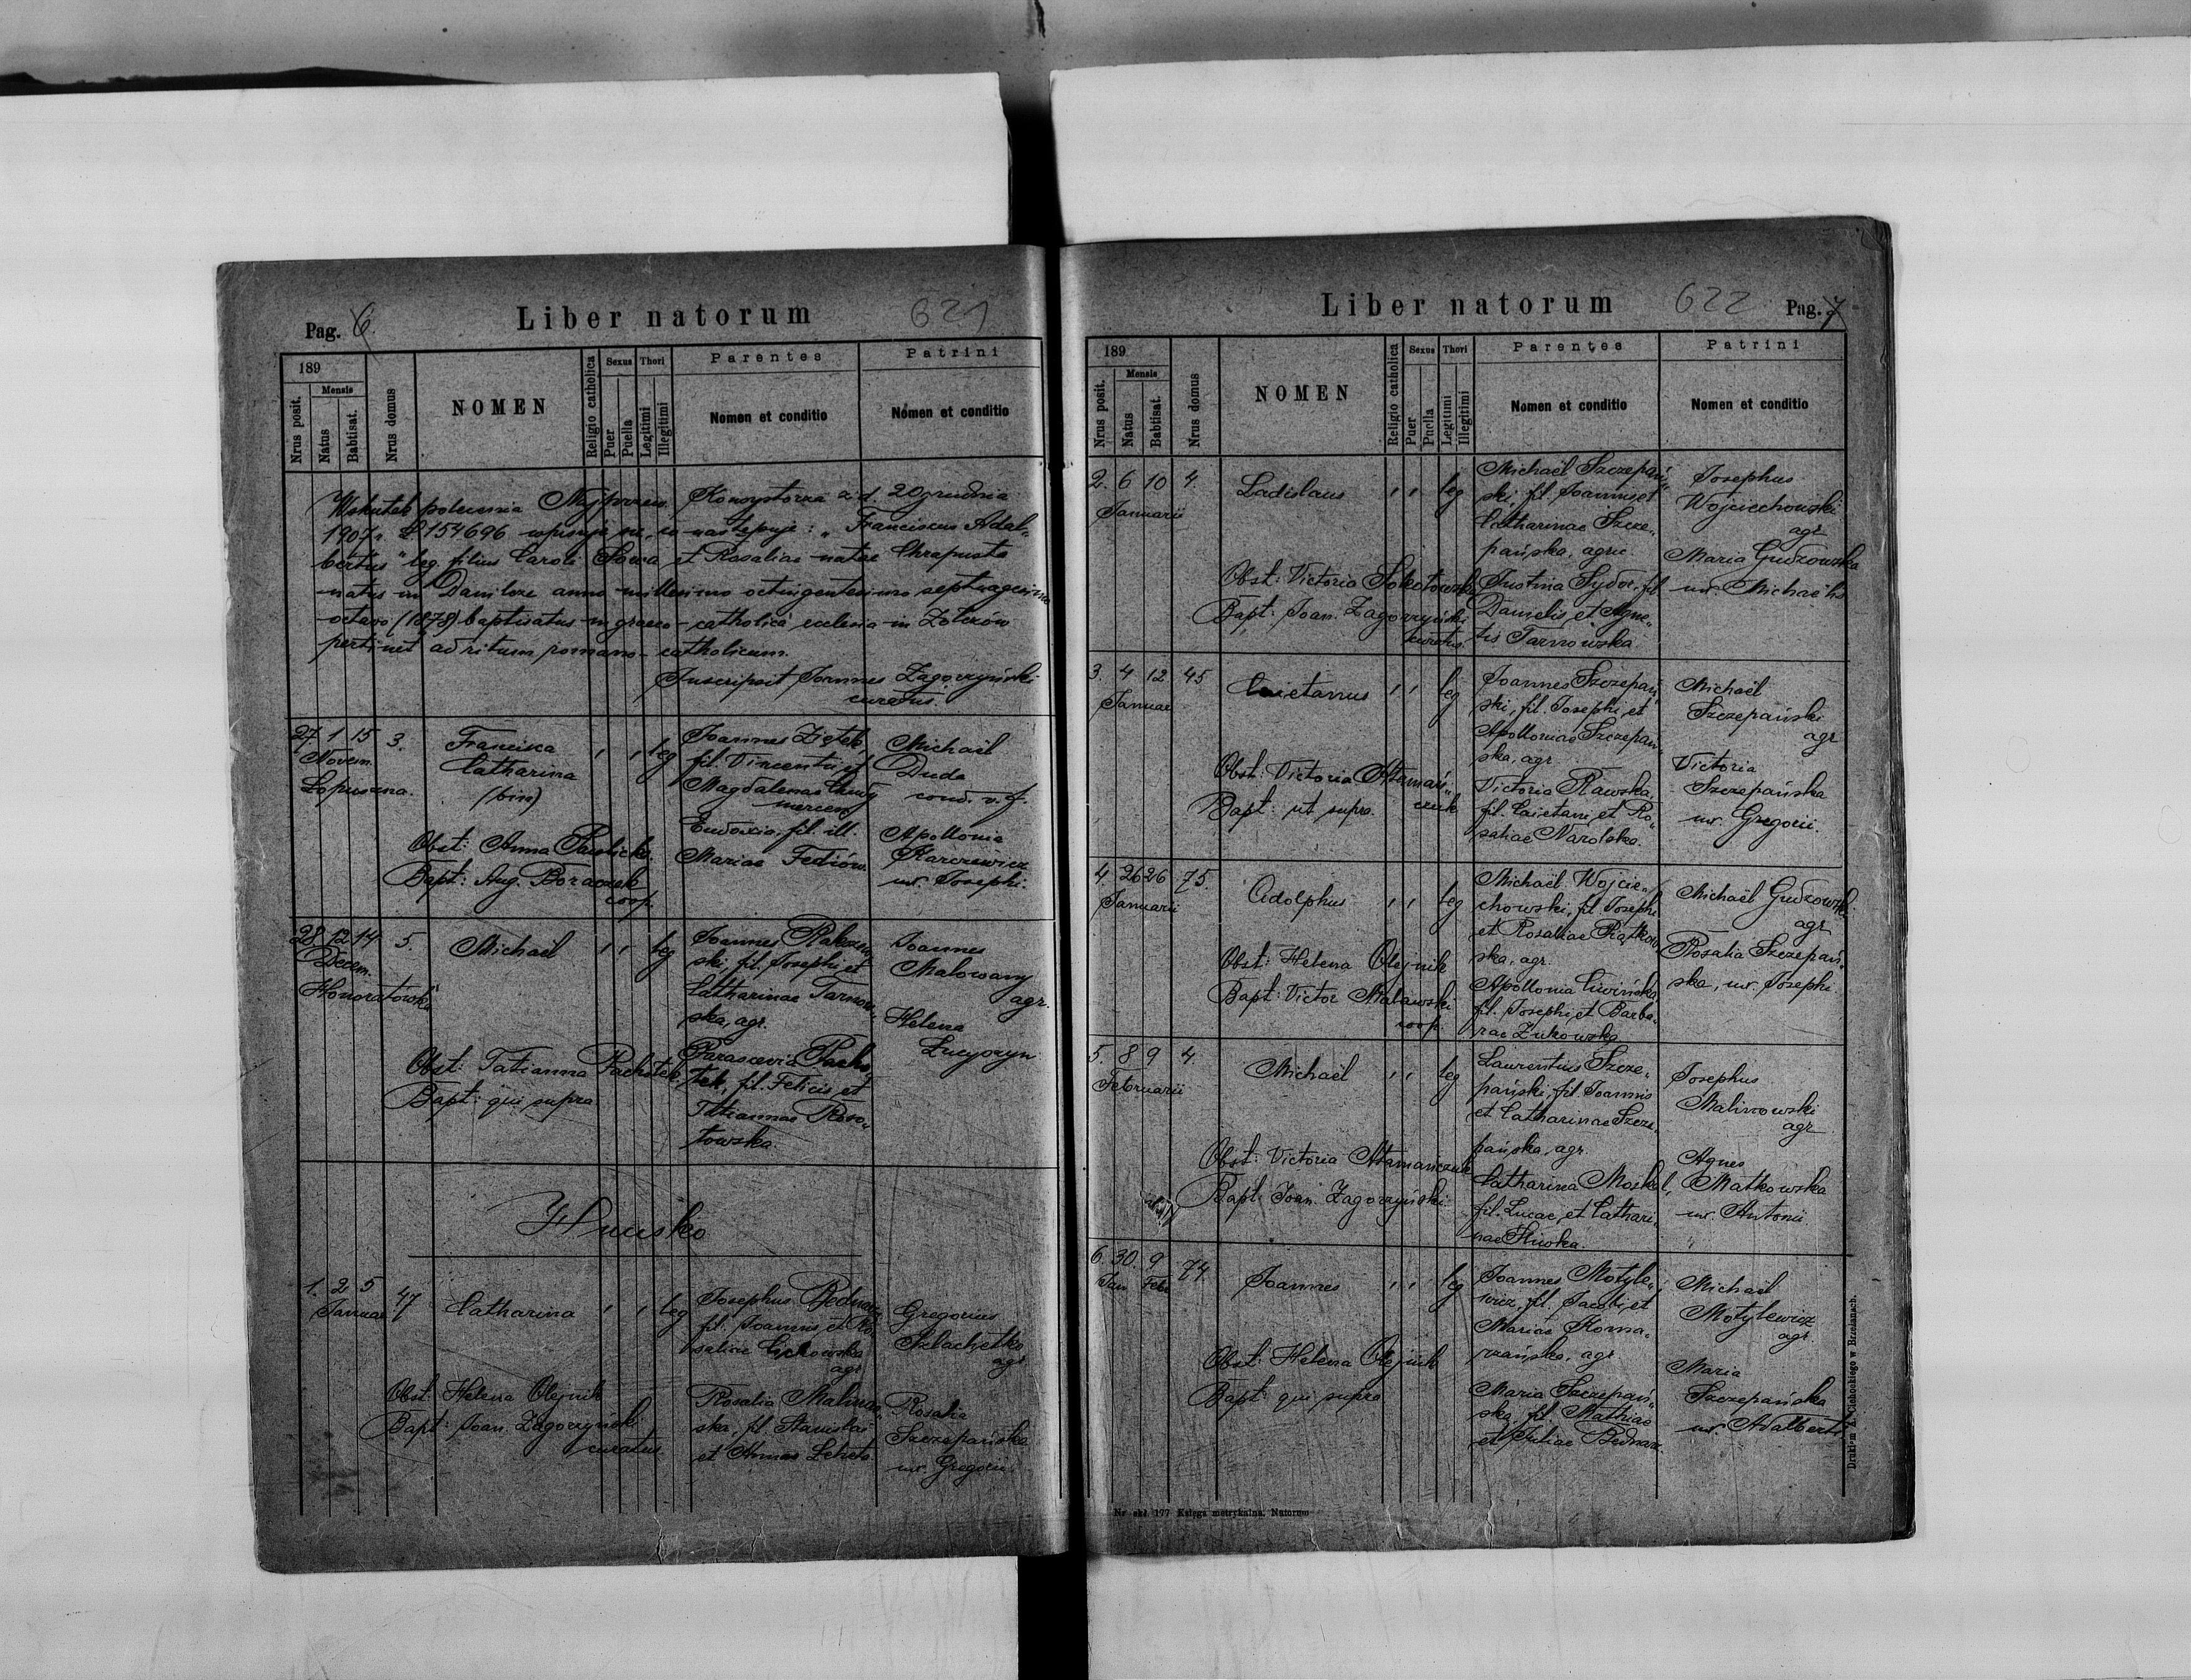 Pag. 6
Liber natorum
621
189
Nrus posit.
Mensis
Natus
Babtisat.
Nrus domus
NOMEN
Religio catholica
Sexus
Puer
Puella
Thori
Legitimi
Illegitimi
Parentes
Nomen et conditio
Patrini
Nomen et conditio
Wskutek polecenia Najprzew. Konsystorza z d. 20 grudnia
1907 L 154696 wpisuje się, co następuje: „Franciscus Adal-
bertus" leg. filius Caroli Sowa et Rosaliae natae Chrapusta
natus in Danilcze anno millesimo octingentesimo septuagesimo
octavo (1878) baptisatus in graeco-catholica ecclesia in Zołczów
pertinet ad ritum romano-catholicum.
Inscripsit Joannes Zagórzyński
curatus.
27 1 15 3.
Novem.
Łopuszna.
Francisca
Catharina
(bin)
Obst: Anna Pawlicka
Bapt: Aug. Boraczek
coop.
, , leg
Joannes Ziętek
fil. Vincentii et
Magdalenae
mercen
Eudoxia, fil. ill.
Mariae Fediów
Michaël
Duda
cond. v. f.
Apollonia
Karczewicz
ux. Josephi.
28 12 14 5.
Decem.
Honoratówka
Michaël
Obst: Tatianna Pachołek
Bapt: qui supra
, , leg
Joannes Rakszew
ski, fil. Josephi et
Catharinae Tarnow-
ska, agr.
Parascevia Pacho-
łek, fil. Felicis et
Tatiannae Roso-
towska
Joannes
Malowany
agr.
Helena
Hnusko
1. 2 5 47
Januar
Catharina
Obst: Helena Olejnik
Bapt: Joan. Zagórzyński
curatus
, , leg
Josephus Bednarz
fil. Joannis et Ro-
saliae
agr
Rosalia Malinow-
ska, fil. Stanislai
et Annae Leheta
Gregorius
Szlachetko
agr
Rosalia
Szczepańska
ux. Gregorii
Liber natorum
622
Pag. 7
189
Nrus posit.
Mensis
Natus
Babtisat.
Nrus domus
NOMEN
Religio catholica
Sexus
Puer
Puella
Thori
Legitimi
Illegitimi
Parentes
Nomen et conditio
Patrini
Nomen et conditio
2. 6 10 4.
Januarii
Ladislaus
Obst: Victoria Sokołowska
Bapt: Joan. Zagórzyński
curatus
, , leg
Michaël Szczepań-
ski, fil. Joannis et
Catharinae Szcze-
pańska, agric
Justina Sydor, fil
Danielis et Agne-
tis Tarnowska.
Josephus
Wojciechowski
agr
Maria Gudzowska
ux. Michaëlis
3. 4 12 45
Januar
Caietanus
Obst: Victoria Atamań-
czuk
Bapt: ut supra
, , leg
Joannes Szczepań-
ski, fil. Josephi et
Apolloniae Szczepań-
ska, agr
Victoria Rawska,
fil. Caietani et Ro-
saliae Narolska.
Michaël
Szczepański
agr
Victoria
Szczepańska
ux. Gregorii.
4. 26 26 75.
Januarii
Adolphus
Obst: Helena Olejnik
Bapt: Victor Malawski
coop.
, , leg
Michaël Wojcie-
chowski, fil Josephi
et Rosaliae Piątkow-
ska, agr.
Apollonia Cwińska
fil. Josephi et Barba-
rae Żukowska
Michaël Gudzowski
agr
Rosalia Szczepań-
ska, ux. Josephi.
5. 8 9 4.
Februarii
Michaël
Obst: Victoria Atamańczuk
Bapt: Joan. Zagórzyński
, , leg
Laurentius Szcze-
pański, fil. Joannis
et Catharinae Szcze-
pańska, agr
Catharina Moskal,
fil. Lucae et Cathari-
nae
Josephus
Malinowski
agr
Agnes
Matkowska
ux. Antonii
6. 30. 9 74.
Jan Febr
Joannes
Obst: Helena Olejnik
Bapt: qui supra
, , leg
Joannes Motyle-
wicz, fil. Jacobi et
Mariae Koma-
rzańska, agr.
Maria Szczepań-
ska, fil. Mathiae
et Juliae Bednarz.
Michaël
Motylewicz
agr.
Maria
Szczepańska
ux. Adalberti
Nr skł. 177 Księga metrykalna. Natorum
Drukiem A. Cichockiego w Brzeżanach.